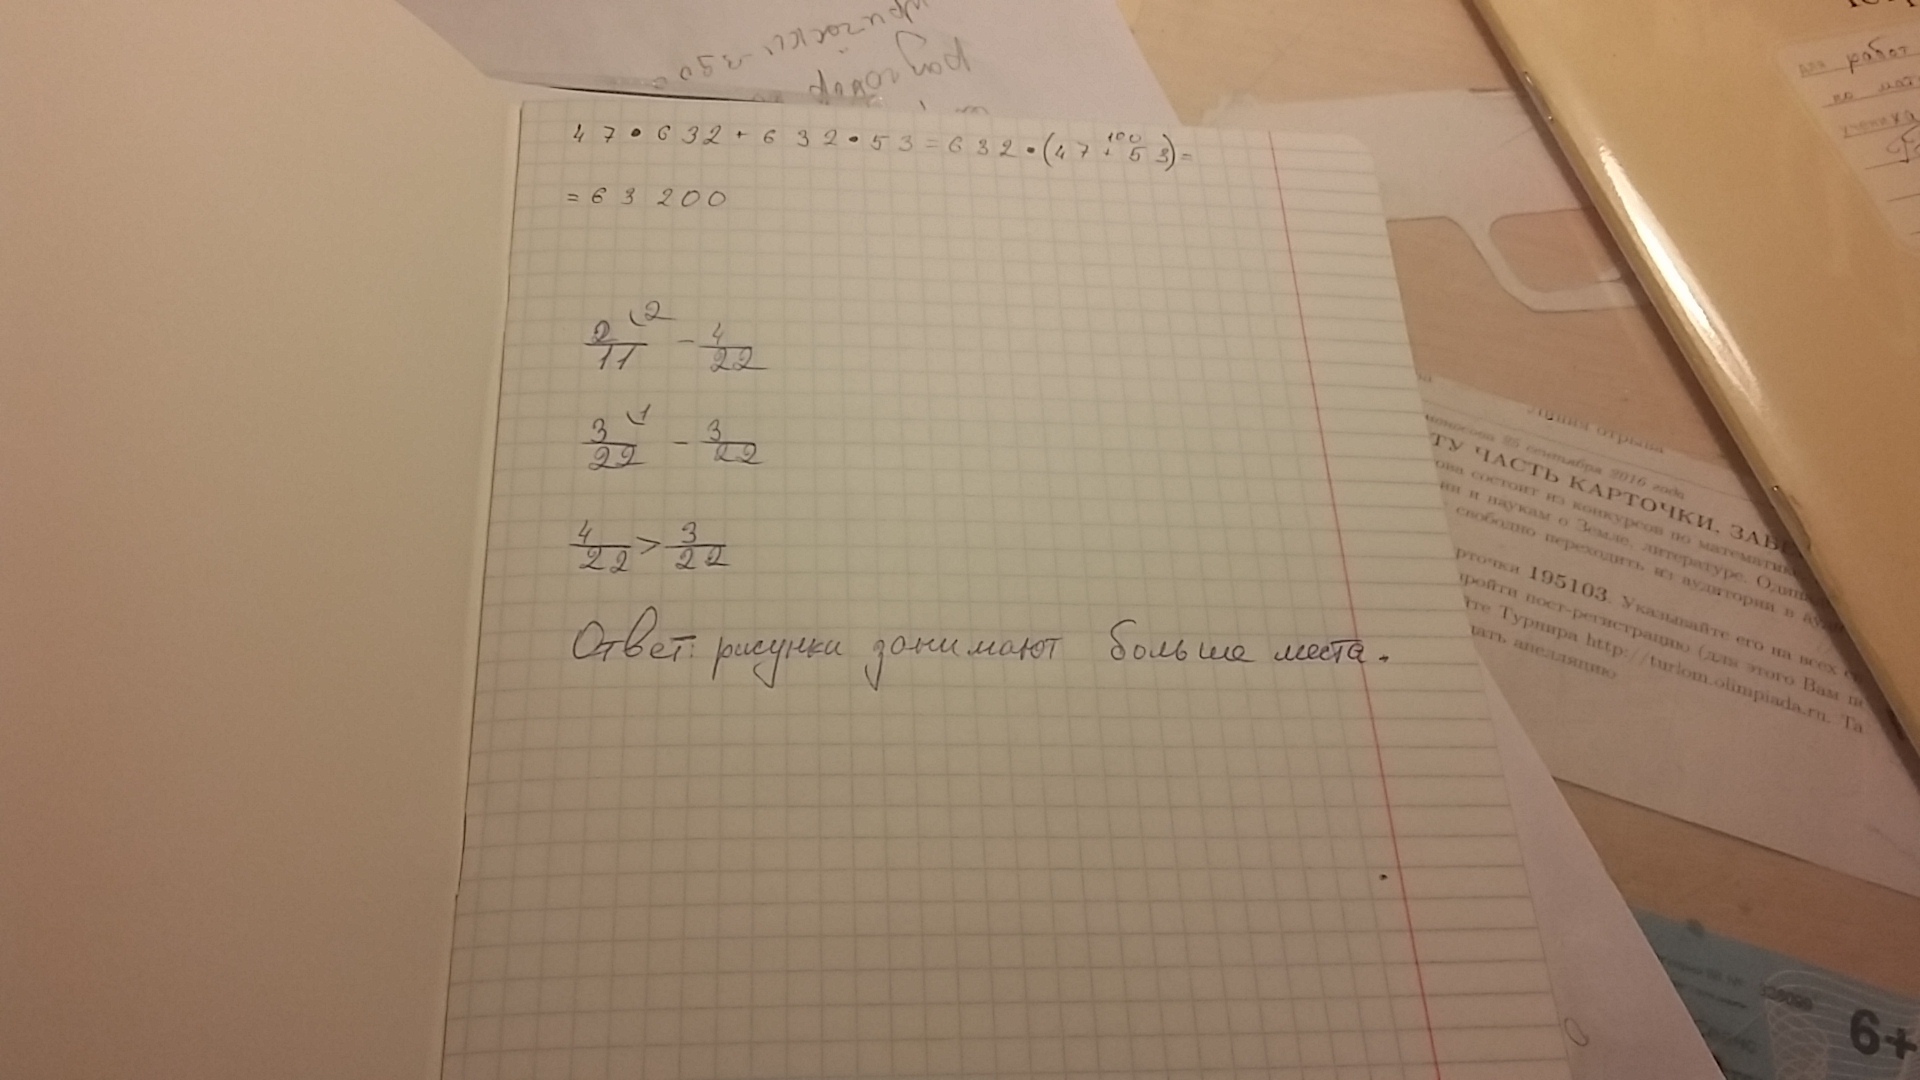 47•632+632•53=632•(47+53)=
100
=63200
2/11 \2 - 4/22
3/22 \1 - 3/22
4/22 > 3/22
Ответ: рисунки занимают больше места.
разговор
для работ
по мат
ученика
Линия отрыва
25 сентября 2016 года
ТУ ЧАСТЬ КАРТОЧКИ. ЗАВЕ
состоит из конкурсов по математик
и наукам о Земле, литературе. Один
свободно переходить из аудитории в ауди
рточки 195103. Указывайте его на всех
ройти пост-регистрацию (для этого Вам
те Турнира http://turlom.olimpiada.ru. Та
дать апелляцию
6+